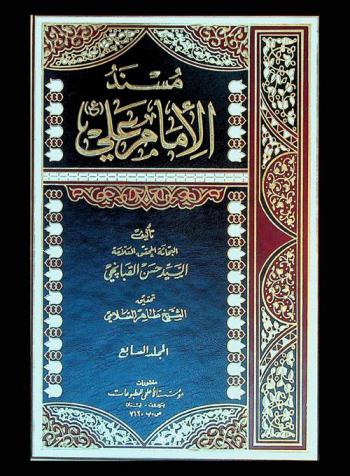 مُسْنَدُ
الإِمَامِ عَلِيّ (ع)
تأليف
البحاثة المحقق العلامة
السيد حسن القبانجي
تحقيق
الشيخ طاهر السلامي
المجلد السابع
منشورات
مؤسسة الأعلمي للمطبوعات
بيروت - لبنان
ص.ب ٧١٢٠